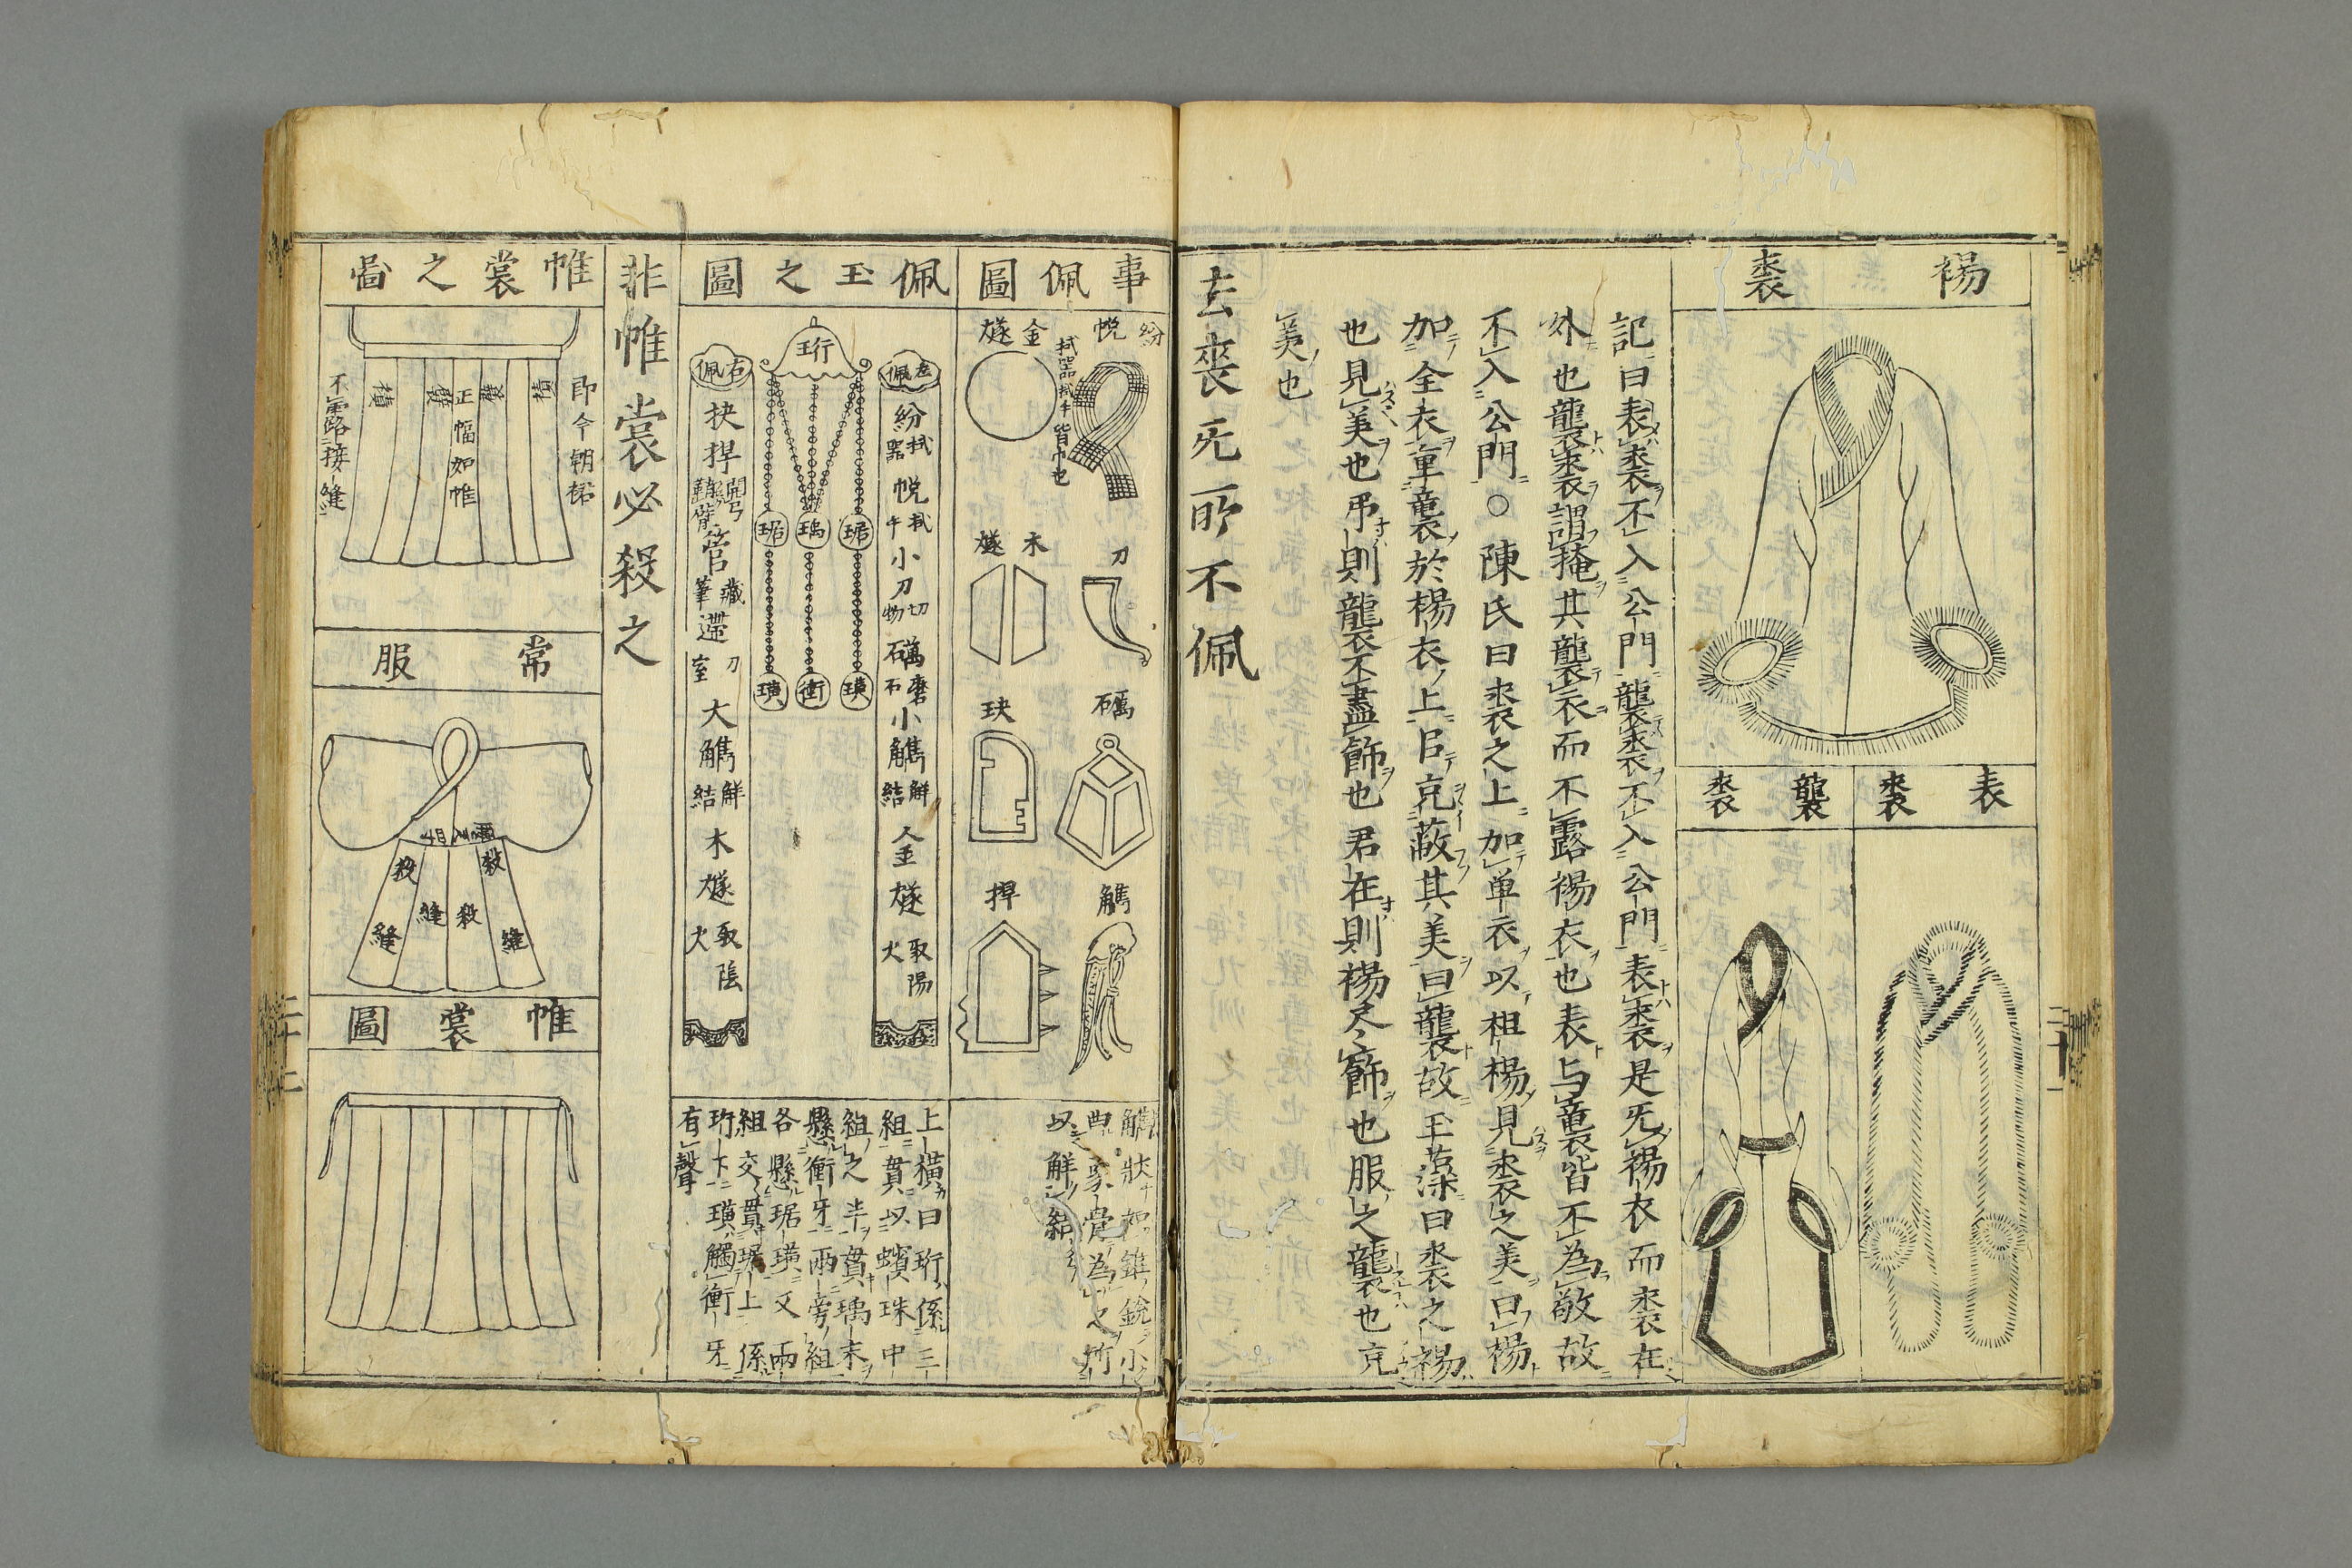 裼裘
表裘
襲裘
記曰表裘不入公門襲裘不入公門表裘是旡裼衣而裘在
外也襲裘謂掩其襲衣而不露裼衣也表与襲皆不為敬故
不入公門○陳氏曰裘之上加単衣以袒裼見裘之美曰裼
加全衣重襲於裼衣上㠯充蔽其美曰襲故玉藻曰裘之裼
也見美也弔則襲不盡飾也君在則裼尽飾也服之襲也充
美也
去喪旡所不佩
事佩圖
紛
帨
拭器拭手皆巾也
金燧
刀
木燧
礪
玦
觽
捍
觿狀如錐銳小
曲象骨為之所
以觧結
佩玉之圖
左佩
紛拭器帨拭手小刀切物礪磨石小觿觧結金燧取陽火
珩
琚
瑀
琚
璜
衝
璜
右佩
抉捍管藏筆遰刀室大觿觧結木燧取陰火
上橫曰珩係三
組貫以蠙珠中
組之半貫瑀末
懸衝牙兩旁組
各懸琚璜又兩
組交貫瑀上係
珩下璜觸衝牙
有聲
非帷裳必殺之
帷裳之啚
即今朝裙
襀
正幅如帷
襀
不露接縫
常服
殺
殺
縫
殺
縫
縫
帷裳圖
二十一
二十二